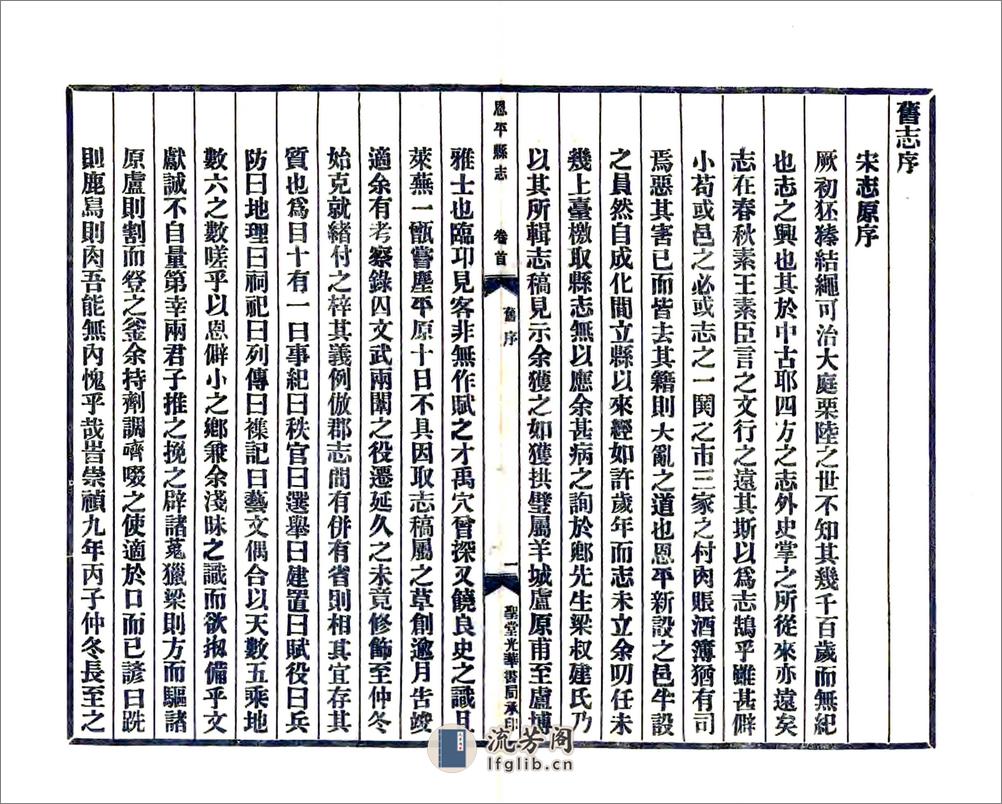 舊志序
宋志原序
厥初狉獉結繩可治大庭栗陸之世不知其幾千百歲而無紀
也志之興也其於中古耶四方之志外史掌之所從來亦遠矣
志在春秋素王素臣言之文行之遠其斯以爲志鵠乎雖甚僻
小苟或邑之必或志之一鬨之市三家之村肉賬酒簿猶有司
焉惡其害已而皆去其籍則大亂之道也恩平新設之邑牛設
之員然自成化間立縣以來經如許歲年而志未立余叨任未
幾上臺檄取縣志無以應余甚病之詢於鄕先生梁权建氏乃
以其所輯志稿見示余獲之如獲拱璧屬羊城盧原甫至盧博
恩平縣志
卷首
舊序
一
聖堂光華書局承印
雅士也臨卭見客非無作賦之才禹穴曾探又饒良史之識且
萊蕪一甑嘗塵平原十日不具因取志稿屬之草創逾月吿竣
適余有考察錄囚文武兩闈之役遷延久之未竟修飾至仲冬
始克就緒付之梓其義例倣郡志間有併有省則相其宜存其
質也爲目十有一曰事紀曰秩官曰選舉曰建置曰賦役曰兵
防曰地理曰祠祀曰列傳曰襍記曰藝文偶合以天數五乘地
數六之數嗟乎以恩僻小之鄕兼余淺昧之識而欲搦備乎文
獻誠不自量第幸兩君子推之挽之辟諸蒐獵梁則方而驅諸
原盧則割而登之釜余持劑調嚌啜之使適於口而已諺曰跣
則鹿舄則肉吾能無內愧乎哉旹崇禎九年丙子仲冬長至之
流芳閣
lfglib.cn